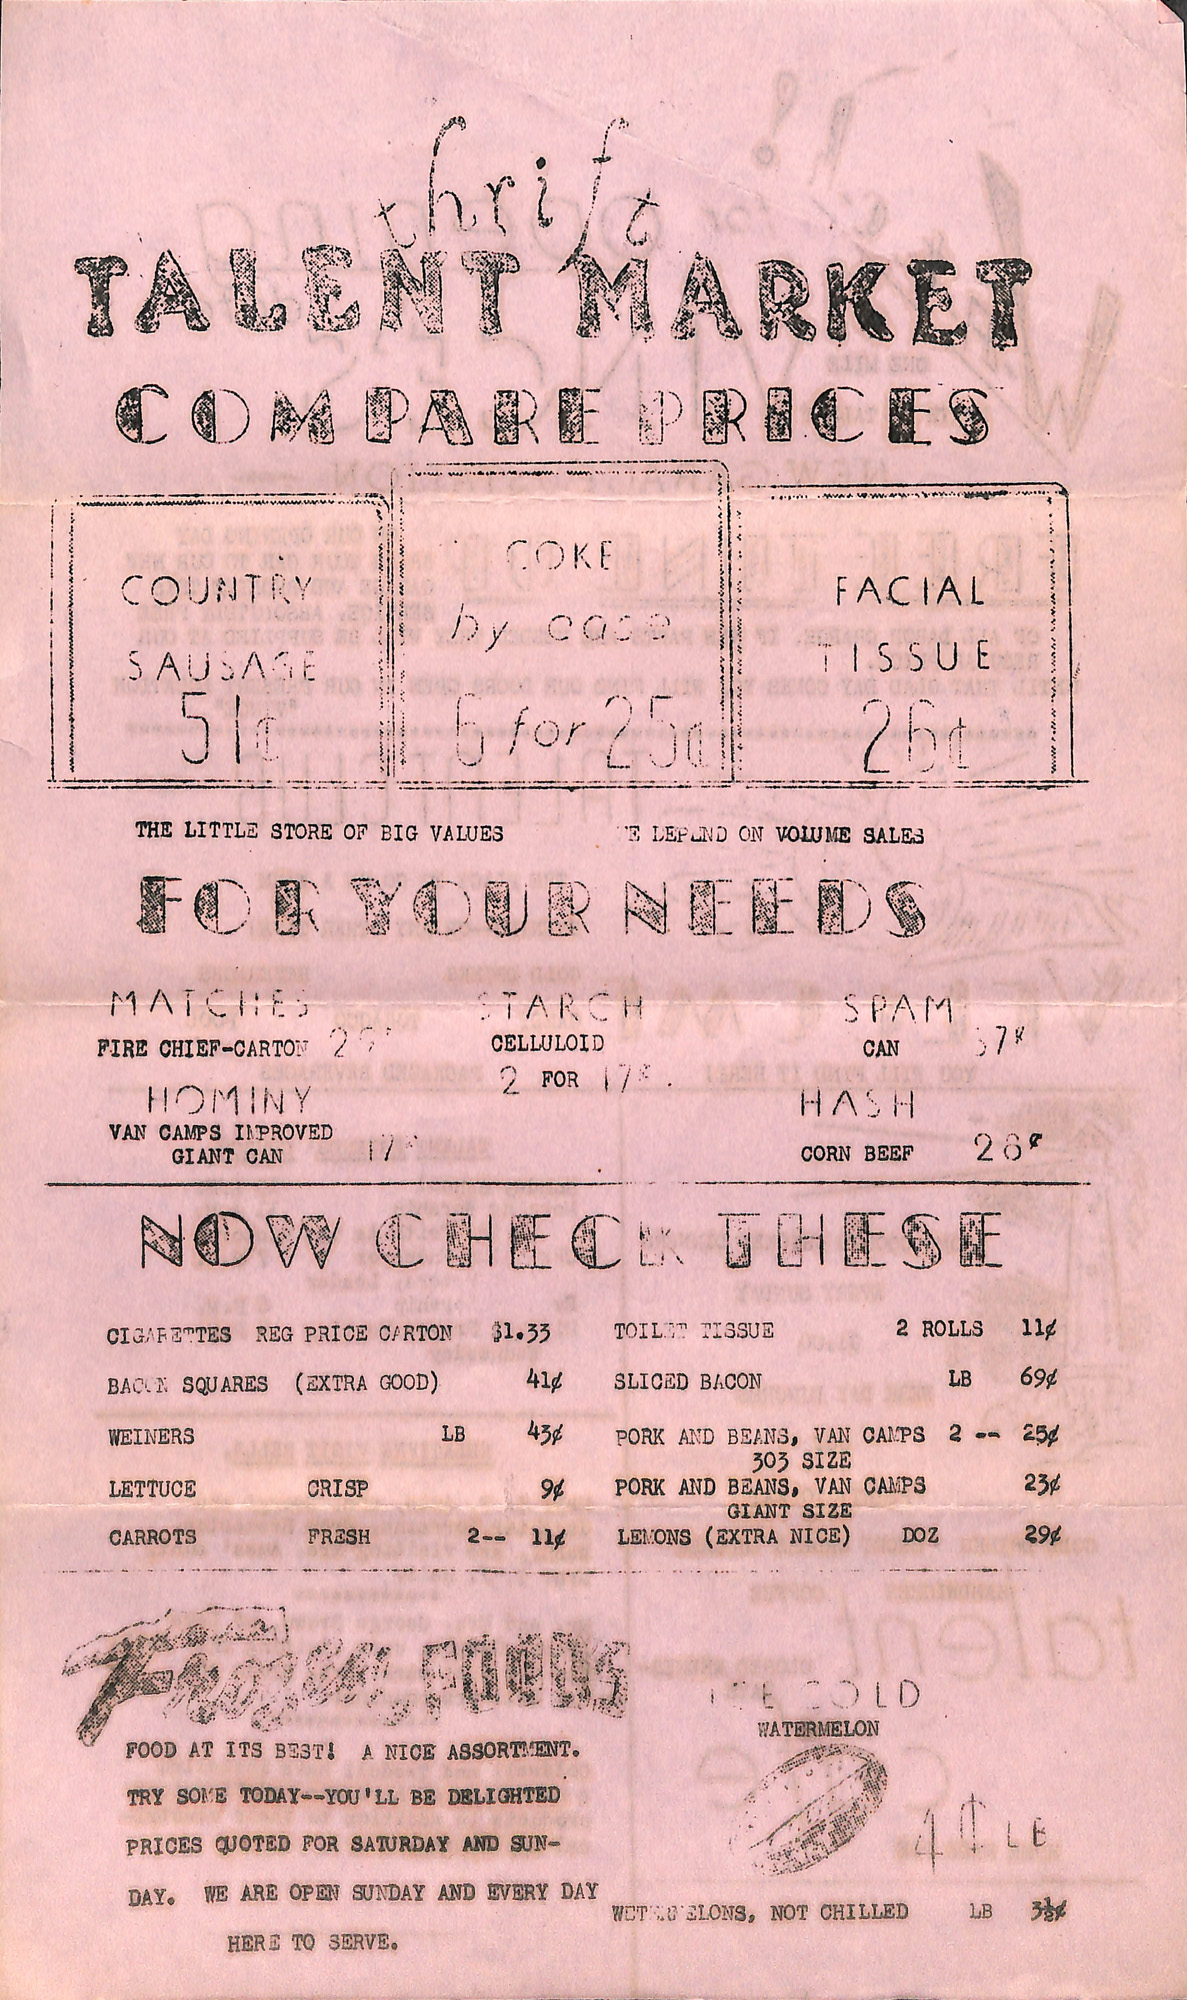 thrift
TALENT MARKET
COMPARE PRICES
COUNTRY
SAUSAGE
51¢
COKE
by case
6 for 25¢
FACIAL
TISSUE
26¢
THE LITTLE STORE OF BIG VALUES
E DEPEND ON VOLUME SALES
FOR YOUR NEEDS
MATCHES
FIRE CHIEF-CARTON
STARCH
CELLULOID
2 FOR 17¢.
SPAM
CAN 37¢
HOMINY
VAN CAMPS IMPROVED
GIANT CAN 17¢
HASH
CORN BEEF 28¢
NOW CHECK THESE
CIGARETTES REG PRICE CARTON $1.33
BACON SQUARES (EXTRA GOOD) 41¢
WEINERS LB 43¢
LETTUCE CRISP 9¢
CARROTS FRESH 2-- 11¢
TOILET TISSUE 2 ROLLS 11¢
SLICED BACON LB 69¢
PORK AND BEANS, VAN CAMPS 2 -- 25¢
303 SIZE
PORK AND BEANS, VAN CAMPS 23¢
GIANT SIZE
LEMONS (EXTRA NICE) DOZ 29¢
Frozen FOODS
FOOD AT ITS BEST! A NICE ASSORTMENT.
TRY SOME TODAY--YOU'LL BE DELIGHTED
PRICES QUOTED FOR SATURDAY AND SUN-
DAY. WE ARE OPEN SUNDAY AND EVERY DAY
HERE TO SERVE.
ICE COLD
WATERMELON
4¢ LB
NOT CHILLED LB 3½¢